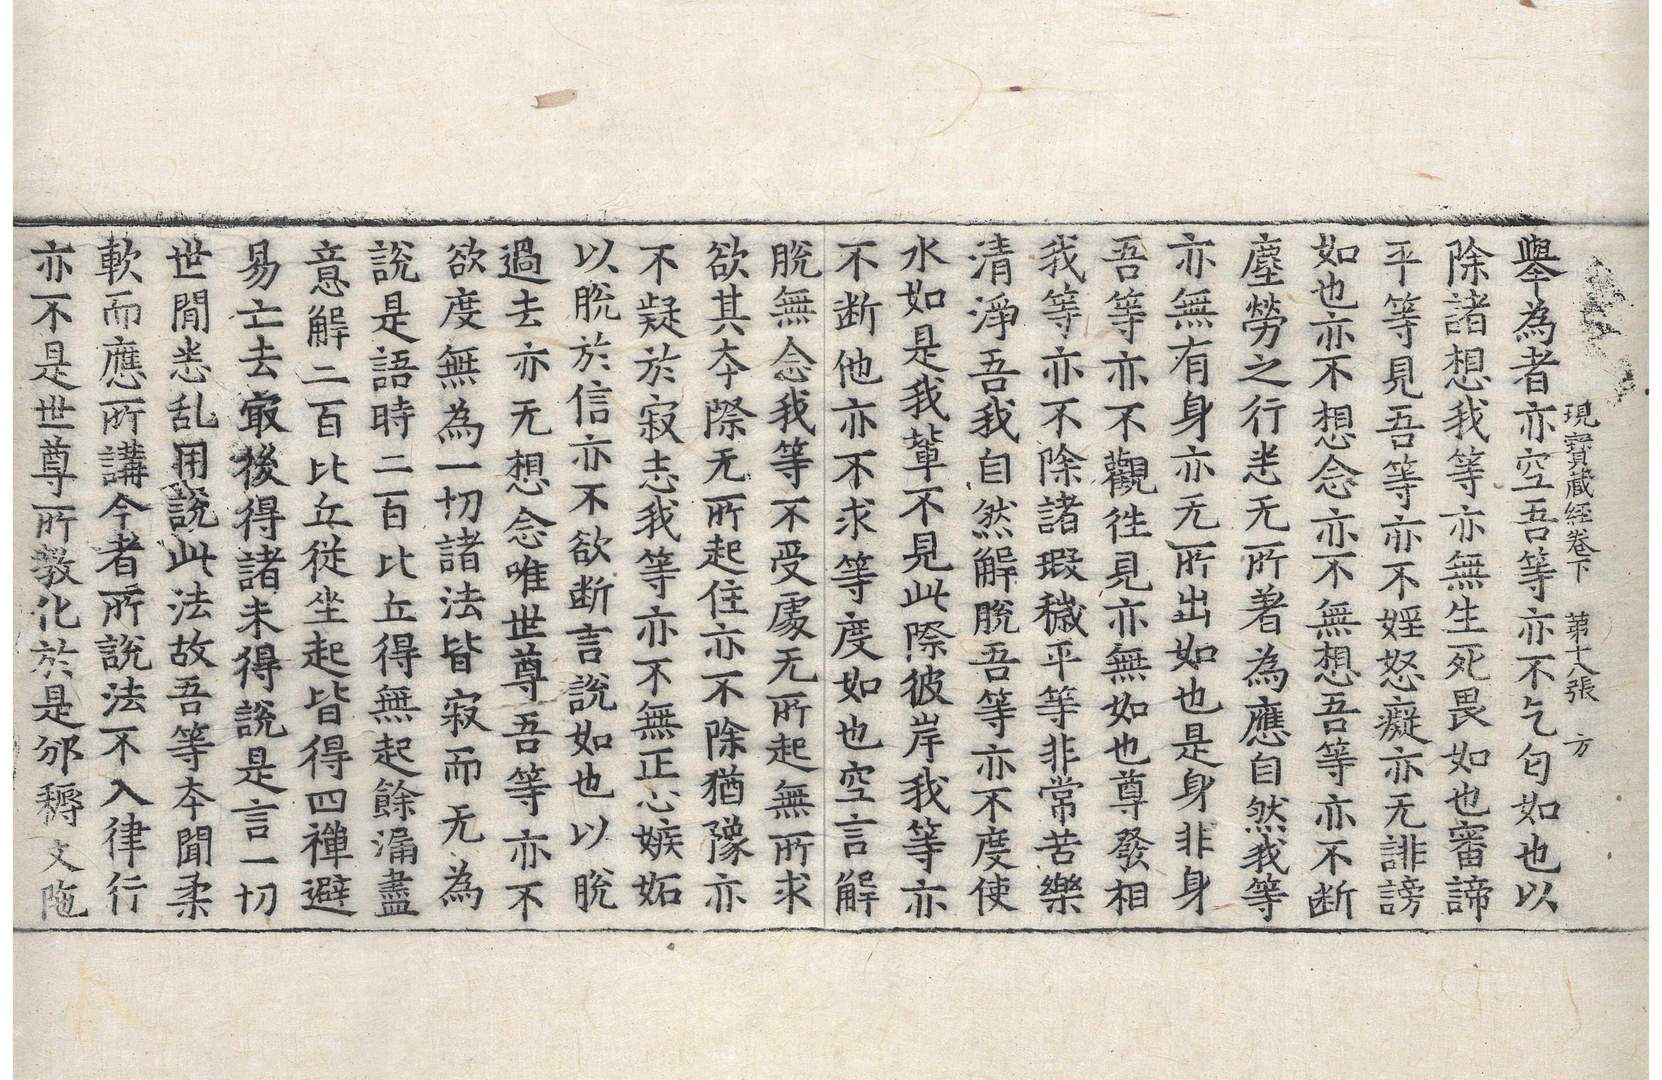 現寶藏經卷下 第十八張 方
舉為者亦空吾等亦不乞匃如也以
除諸想我等亦無生死畏如也審諦
平等見吾等亦不婬怒癡亦无誹謗
如也亦不想念亦不無想吾等亦不断
塵勞之行恙无所著為應自然我等
亦無有身亦无所出如也是身非身
吾等亦不觀徃見亦無如也尊發相
我等亦不除諸瑕穢平等非常苦樂
清淨吾我自然解脫吾等亦不度使
水如是我輩不見此際彼岸我等亦
不断他亦不求等度如也空言解
脫無念我等不受處无所起無所求
欲其夲際无所起住亦不除猶豫亦
不礙於寂志我等亦不無正心嫉妬
以脫於信亦不欲断言說如也以脫
過去亦无想念唯世尊吾等亦不
欲度無為一切諸法皆寂而无為
說是語時二百比丘得無起餘漏盡
意解二百比丘從坐起皆得四禪避
易亡去㝡後得諸未得說是言一切
世間恙乱用說此法故吾等夲聞柔
軟而應所講今者所說法不入律行
亦不是世尊所教化於是邠耨文陁